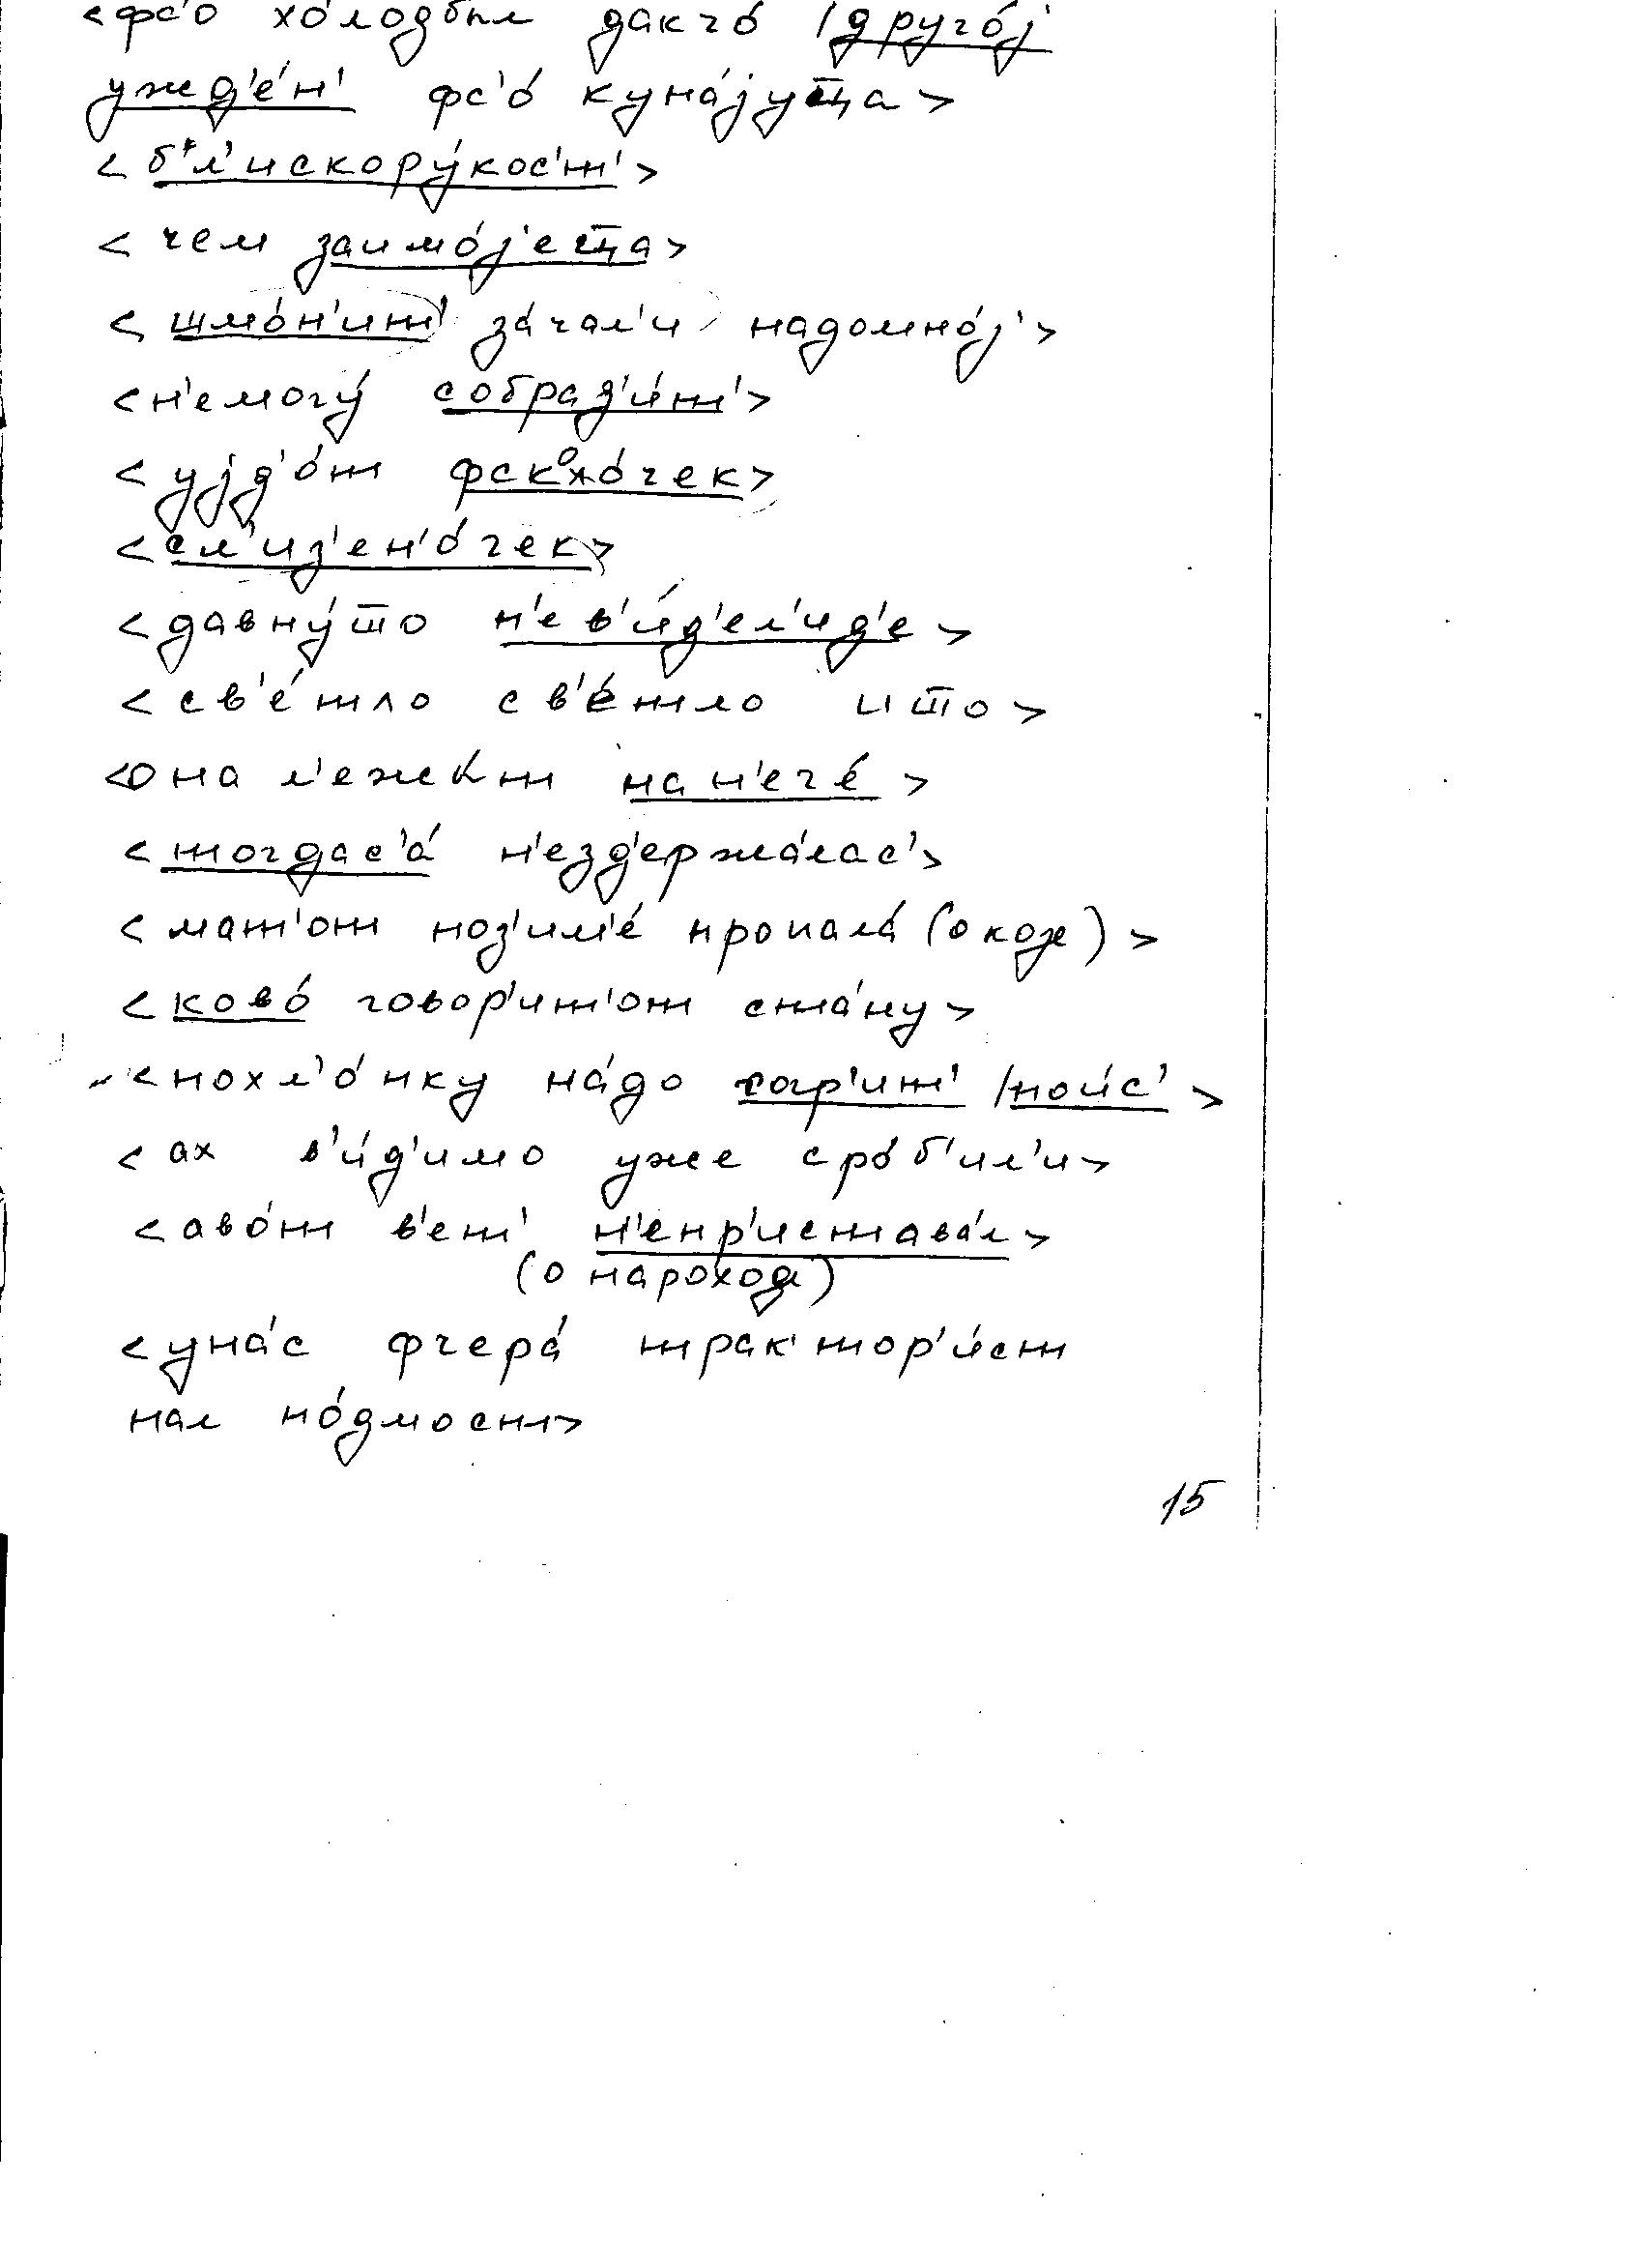 <фс'о хо́лодбыл дакчо́ /друго́j
ужд'е́н' фс'о́ купа́jуm̅ца>
<б'л'искору́кос'т'>
<чем заимо́j'ещ̅а>
<шмо́н'ит' за́чал'и надомно́j'>
<н'емогу́ собрад'и́т'>
<уjд'о́т фско́лочек>
<сл'из'ен'о́чек>
<давну́т̅о н'ев'и́д'ел'ид'е>
<св'е́тло св'е́тло ит̅о>
<она л'ежи́т на п'ече́>
<тогдас'а́ н'езд'ержа́лас'>
<мат'от поз'им'е́ пропала́ (о козе)>
<ково́ говор'ит'от ста́ну>
<похл'о́пку на́до согр'ит' /пои́с'>
<ах в'и́д'имо уже сро́б'ил'и>
<аво́т в'ет' н'епр'истава́л>
(о пароходе)
<уна́с фчера́ трактор'и́ст
пал по́дмост>
15